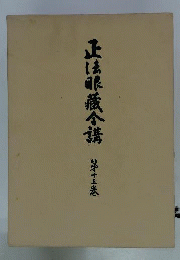 正法眼蔵全講
第十五巻